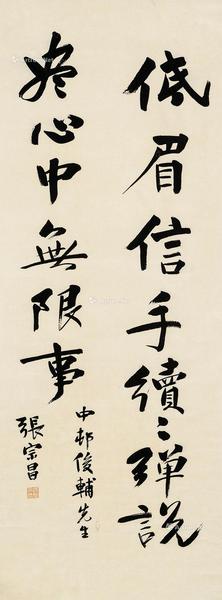 低眉信手續〻弹説
尽心中無限事
中邨俊輔先生
張宗昌